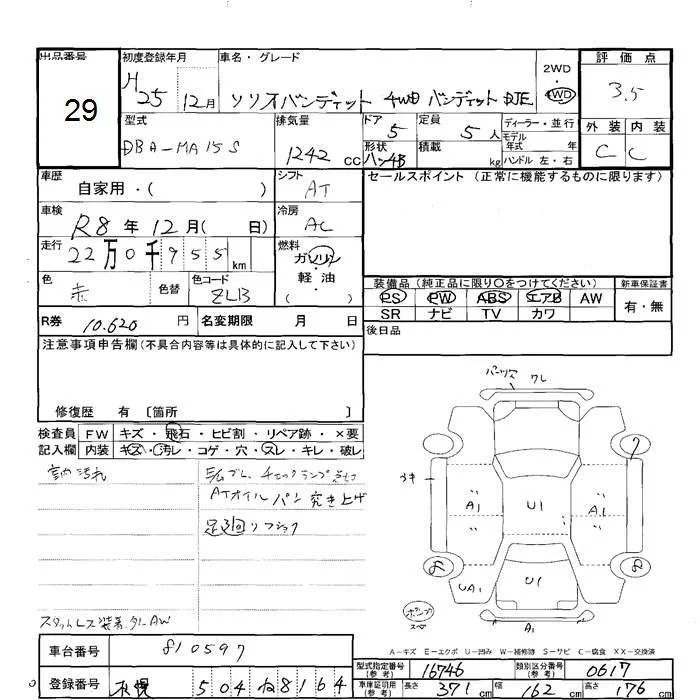 出品番号 29
初度登録年月 H25 12月
車名・グレード ソリオバンディット 4WD バンディット DJE
2WD・4WD
評価点 3.5
外装 C 内装 C
型式 DBA-MA15S
排気量 1242 cc
ドア 5
形状 ハッチB
定員 5 人
積載 kg
ディーラー・並行
モデル年式 年式
ハンドル 左・右
車歴 自家用・( )
シフト AT
セールスポイント (正常に機能するものに限ります)
車検 R8年 12月( 日)
冷房 AC
走行 22万0千955 km
燃料 ガソリン・軽油 ( )
色 赤 色替 色コード ZLB
装備品 (純正品に限り〇をつけてください) 新車保証書
PS PW ABS エアB AW 有・無
SR ナビ TV カワ
R券 10.620 円 名変期限 月 日
後日品
注意事項申告欄 (不具合内容等は具体的に記入して下さい)
修復歴 有 〔箇所 〕
検査員 FW キズ・飛石・ヒビ割・リペア跡・×要
記入欄 内装 キズ・汚レ・コゲ・穴・スレ・キレ・破レ
室内汚れ
チェックランプ
ATオイルパン突き上げ
足廻リ
スタットレス装着 AW
パーツ欠 ワレ
ウキ
A1 U1 A1
UA1 U1
A1
A-キズ E-エクボ U-凹み W-補修跡 S-サビ C-腐食 XX-交換済
車台番号 810597
型式指定番号 (参考) 16746 類別区分番号 (参考) 0617
登録番号 札幌 504 ね8164
車庫証明用 (参考) 長さ 371 cm 幅 162 cm 高さ 176 cm